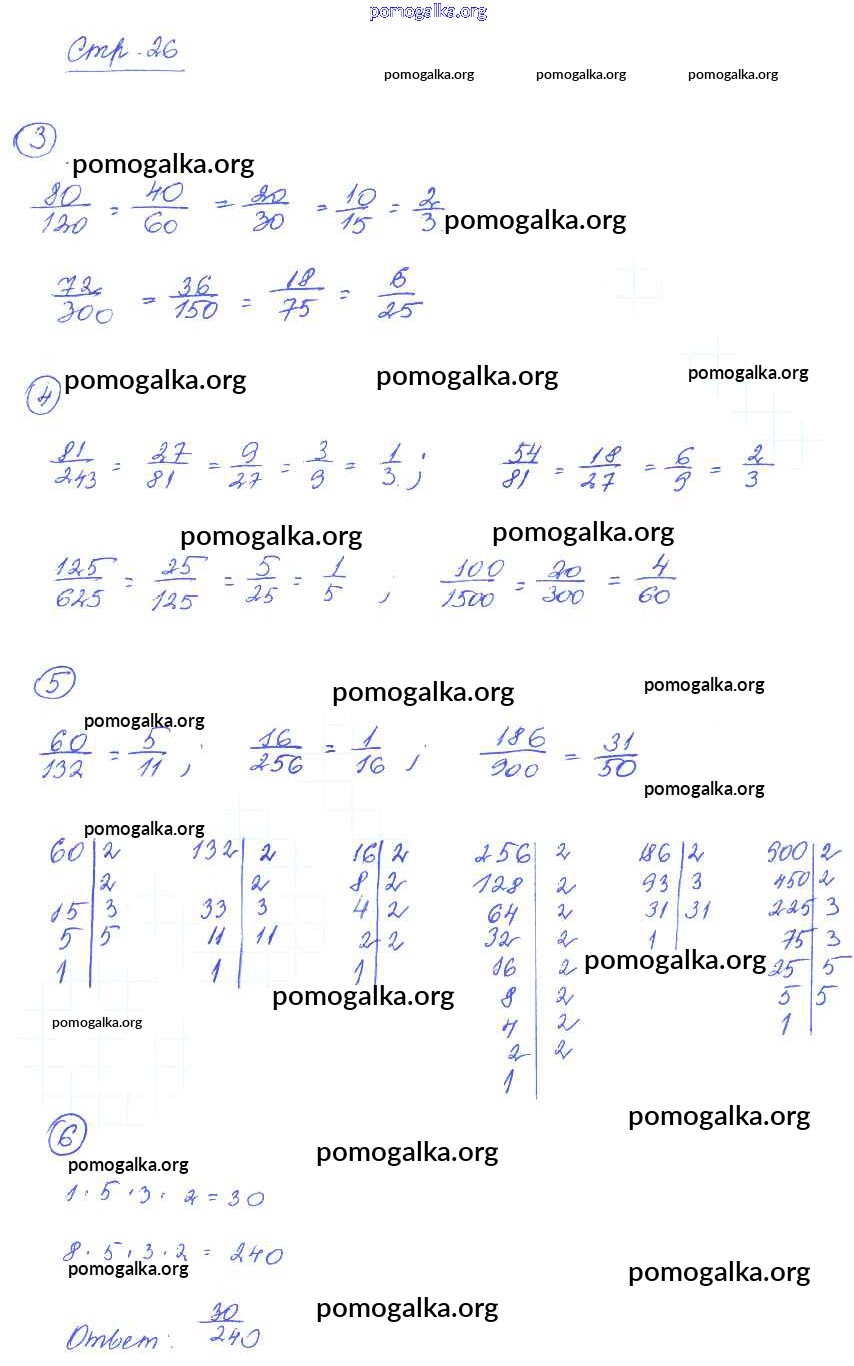 pomogalka.org
Стр. 26
pomogalka.org pomogalka.org pomogalka.org
3
pomogalka.org
80/120 = 40/60 = 20/30 = 10/15 = 2/3
pomogalka.org
72/300 = 36/150 = 18/75 = 6/25
4
pomogalka.org pomogalka.org pomogalka.org
81/243 = 27/81 = 9/27 = 3/9 = 1/3 ; 54/81 = 18/27 = 6/9 = 2/3
pomogalka.org pomogalka.org
125/625 = 25/125 = 5/25 = 1/5 ; 100/1500 = 20/300 = 4/60
5
pomogalka.org pomogalka.org
pomogalka.org
60/132 = 5/11 ; 16/256 = 1/16 ; 186/900 = 31/50
pomogalka.org
pomogalka.org
60|2 132|2 16|2 256|2 186|2 900|2
|2 |2 8|2 128|2 93|3 450|2
15|3 33|3 4|2 64|2 31|31 225|3
5|5 11|11 2|2 32|2 1| 75|3
1| 1| 1| 16|2 25|5
pomogalka.org
pomogalka.org
8|2 5|5
pomogalka.org
4|2 1|
2|2
1|
6
pomogalka.org
pomogalka.org
pomogalka.org
1 · 5 · 3 · 2 = 30
8 · 5 · 3 · 2 = 240
pomogalka.org pomogalka.org
pomogalka.org
Ответ: 30/240